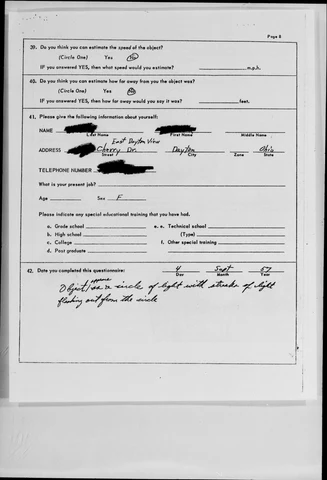 Page 8
39. Do you think you can estimate the speed of the object?
(Circle One) Yes No
IF you answered YES, then what speed would you estimate? m.p.h.
40. Do you think you can estimate how far away from you the object was?
(Circle One) Yes No
IF you answered YES, then how far away would you say it was? feet.
41. Please give the following information about yourself:
NAME
Last Name First Name Middle Name
East Dayton View
ADDRESS Cherry Dr. Dayton Ohio
Street City Zone State
TELEPHONE NUMBER
What is your present job?
Age Sex F
Please indicate any special educational training that you have had.
a. Grade school e. Technical school
b. High school (Type)
c. College f. Other special training
d. Post graduate
42. Date you completed this questionnaire: 4 Sept 57
Day Month Year
Object as a circle of light with streaks of light
flashing out from the circle